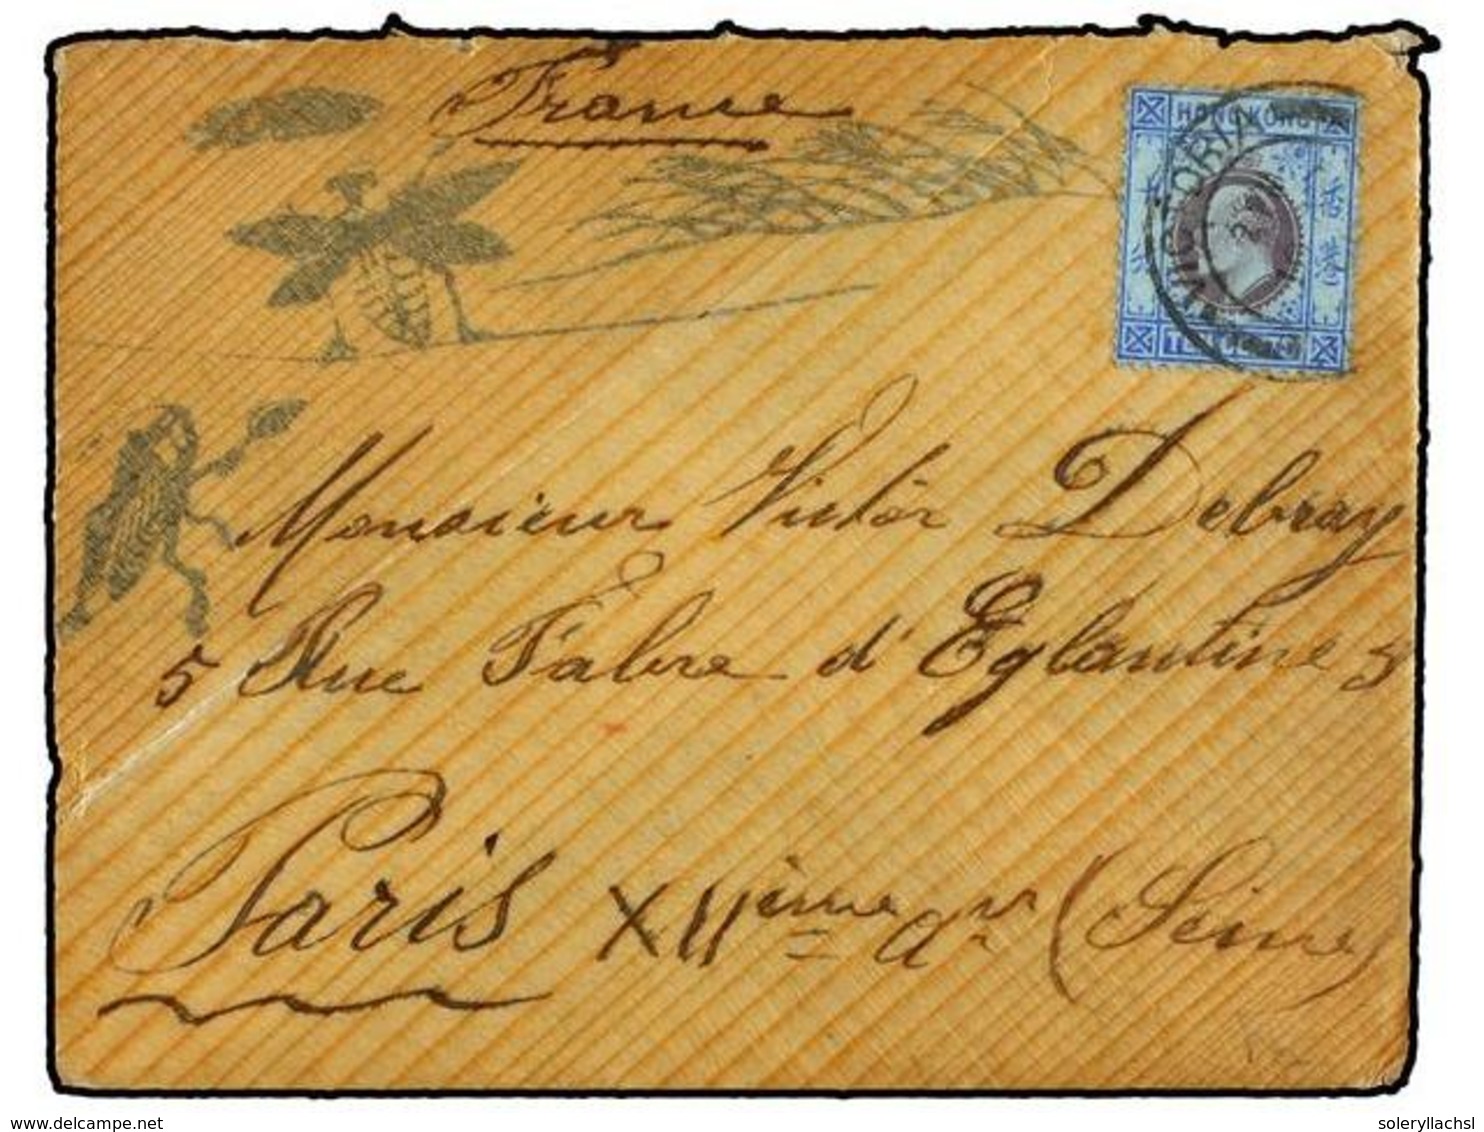 France
HONG KONG
VICTORIA
香
港
TEN CENTS
Monsieur Victor Debray
5 Rue Fabre d'Eglantine 5
Paris XIIème arr (Seine)
www.delcampe.net
soleryllachsl